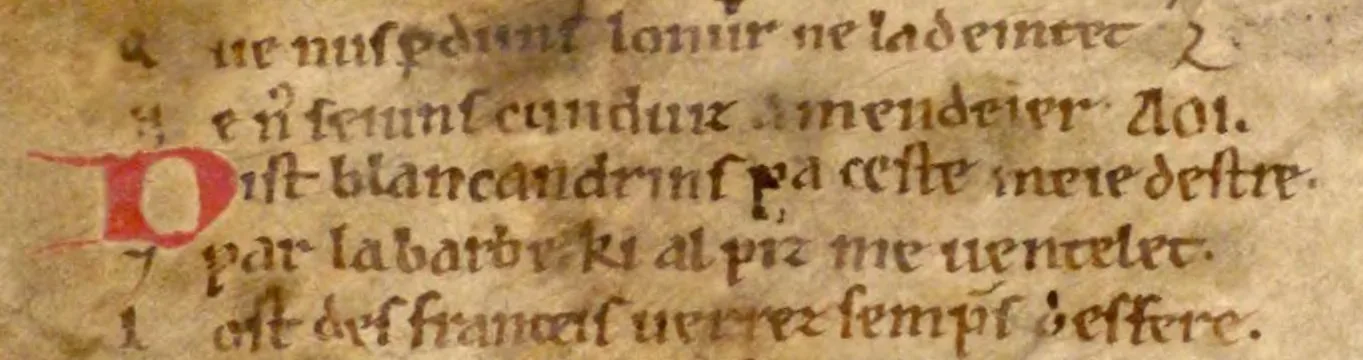 Q ue nus ꝑduns lonur ne la deintet
N e n̄ seiuns cunduiz a mendeier. Aoi.
Dist blancandrins ꝑ a ceste meie destre.
⁊ par la barbe ki al piz me uentelet.
L ost des franceis uerrez semp̄s desfere.